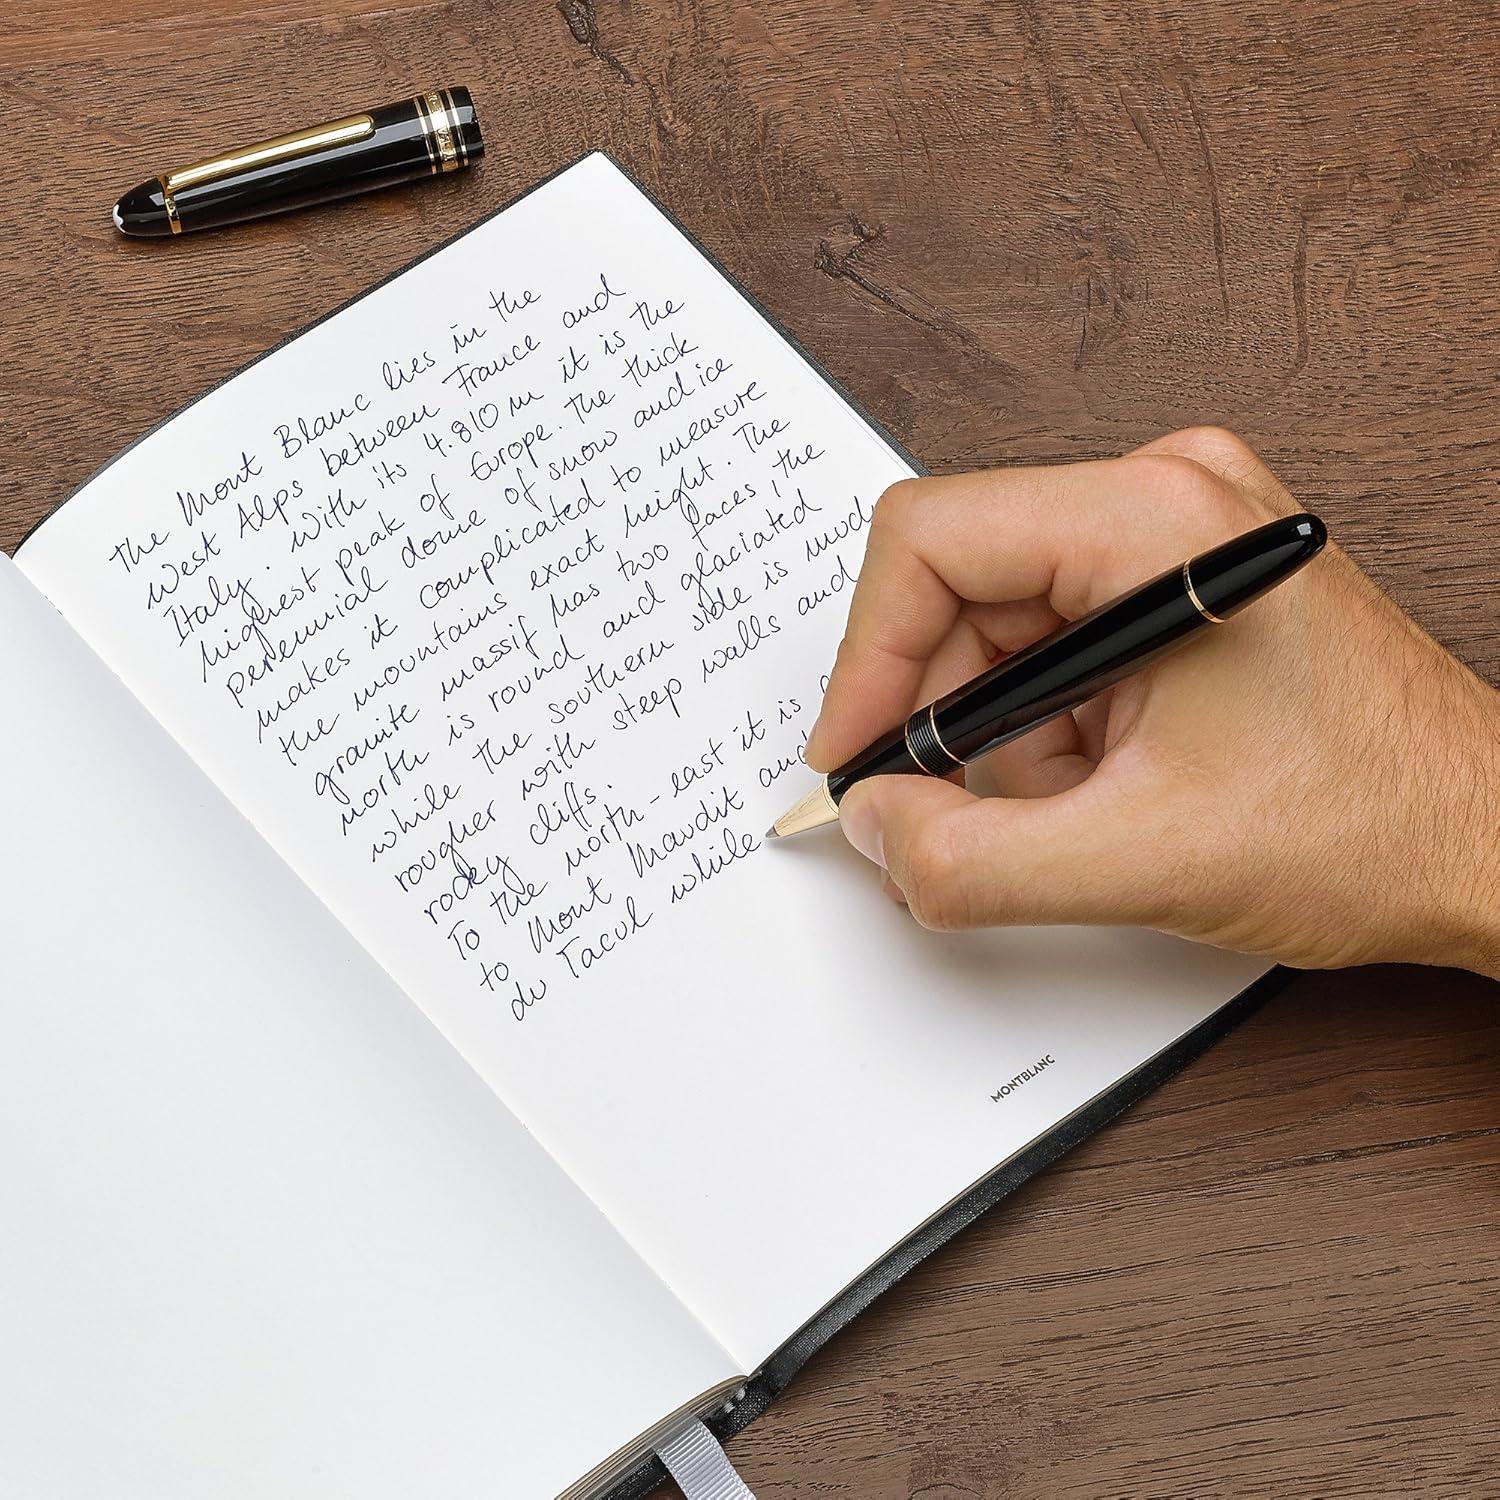 The Mont Blanc lies in the
West Alps between France and
Italy. With its 4.810 m it is the
highest peak of Europe. The thick
perennial dome of snow and ice
makes it complicated to measure
the mountains exact height. The
granite massif has two faces, the
north is round and glaciated
while the southern side is mud
rougher with steep walls and
rocky cliffs.
To the north-east it is
to Mont Maudit and
du Tacul while
MONTBLANC